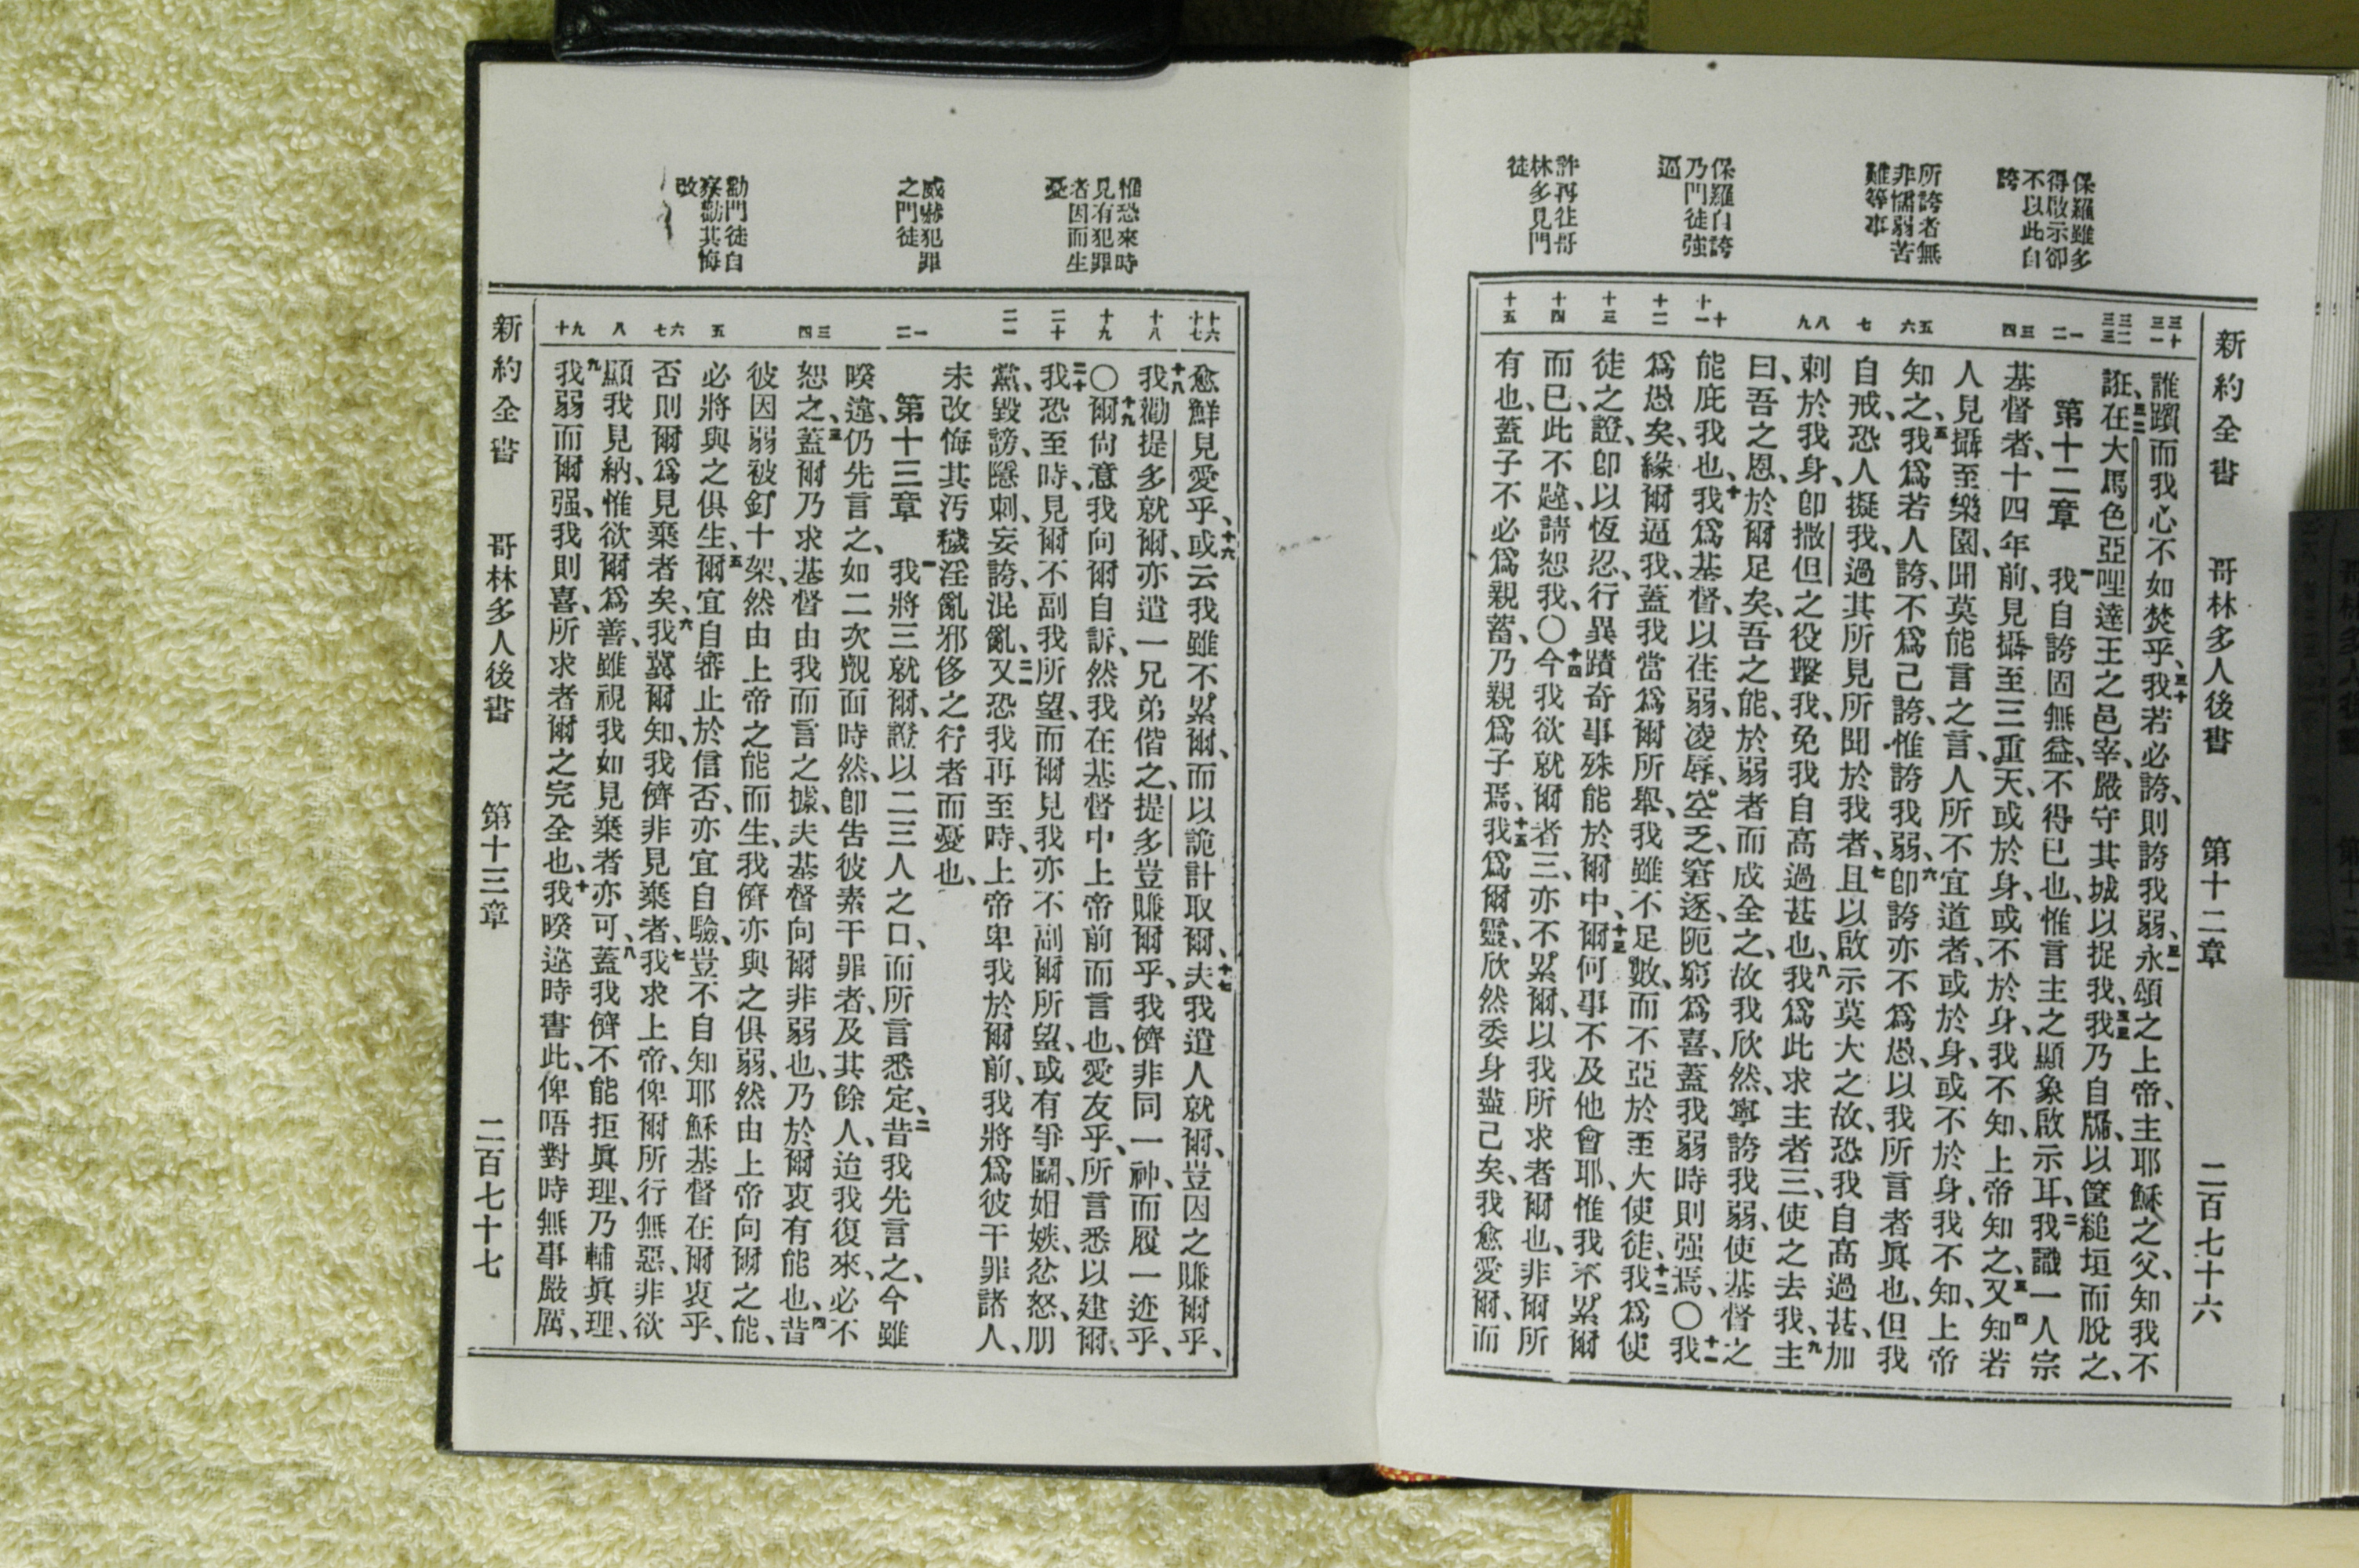 新約全書 哥林多人後書 第十二章 二百七十六
保羅雖多
得啟示卻
不以此自
誇
所誇者無
非懦弱苦
難等事
保羅自誇
乃門徒強
逼
許再往哥
林多見門
徒
三十 三一
三二 三三
一 二
三 四
五 六
七
八 九
十 十一
十二
十三
十四
十五
誰躓而我心不如焚乎、三十我若必誇、則誇我弱、三一永頌之上帝、主耶穌之父、知我不
誑、三二在大馬色亞哩達王之邑宰、嚴守其城以捉我、三三我乃自牖、以筐縋垣而脫之、
第十二章 一我自誇固無益、不得已也、惟言主之顯象啟示耳、二我識一人宗
基督者、十四年前、見攝至三重天、或於身、或不於身、我不知、上帝知之、三又四知若
人見攝至樂園、聞莫能言之言、人所不宜道者、或於身、或不於身、我不知、上帝
知之、五我爲若人誇、不爲己誇、惟誇我弱、六卽誇亦不爲愚、以我所言者眞也、但我
自戒、恐人擬我、過其所見所聞於我者、七且以啟示莫大之故、恐我自高過甚、加
刺於我身、卽撒但之役擊我、免我自高過甚也、八我爲此求主者三、使之去我、九主
曰、吾之恩、於爾足矣、吾之能、於弱者而成全之、故我欣然、寧誇我弱、使基督之
能庇我也、十我爲基督、以在弱、凌辱、空乏、窘逐、阨窮爲喜、蓋我弱時則强焉、〇十一我
爲愚矣、緣爾逼我、蓋我當爲爾所舉、我雖不足數、而不亞於至大使徒、十二我爲使
徒之證、卽以恆忍、行異蹟奇事殊能於爾中、十三爾何事不及他會耶、惟我不累爾
而已、此不韙、請恕我、〇十四今我欲就爾者三、亦不累爾、以我所求者爾也、非爾所
有也、蓋子不必爲親蓄、乃親爲子焉、十五我爲爾靈、欣然委身盡己矣、我愈愛爾、而
惟恐來時
見有犯罪
者因而生
憂
威嚇犯罪
之門徒
勸門徒自
察勸其悔
改
十六 十七
十八
十九
二十
二一
一 二
三 四
五
六 七
八
九 十
愈鮮見愛乎、十六或云我雖不累爾、而以詭計取爾、十七夫我遣人就爾、豈因之賺爾乎、
十八我勸提多就爾、亦遣一兄弟偕之、提多豈賺爾乎、我儕非同一神、而履一迹乎、
〇十九爾尙意我向爾自訴、然我在基督中上帝前而言也、愛友乎、所言悉以建爾、
二十我恐至時、見爾不副我所望、而爾見我亦不副爾所望、或有爭鬭、娼嫉、忿怒、朋
黨、毀謗、隱刺、妄誇、混亂、二一又恐我再至時、上帝卑我於爾前、我將爲彼干罪諸人、
未改悔其汚穢淫亂邪侈之行者而憂也、
第十三章 一我將三就爾、證以二三人之口、而所言悉定、二昔我先言之、今雖
暌違、仍先言之、如二次覿面時然、卽告彼素干罪者、及其餘人、迨我復來、必不
恕之、三蓋爾乃求基督由我而言之據、夫基督向爾非弱也、乃於爾衷有能也、四昔
彼因弱被釘十架、然由上帝之能而生、我儕亦與之俱弱、然由上帝向爾之能、
必將與之俱生、五爾宜自審止於信否、亦宜自驗、豈不自知耶穌基督在爾衷乎、
否則爾爲見棄者矣、六我冀爾知、我儕非見棄者、七我求上帝、俾爾所行無惡、非欲
顯我見納、惟欲爾爲善、雖視我如見棄者亦可、八蓋我儕不能拒眞理、乃輔眞理、
九我弱而爾强、我則喜、所求者爾之完全也、十我暌違時書此、俾唔對時無事嚴厲、
新約全書 哥林多人後書 第十三章 二百七十七